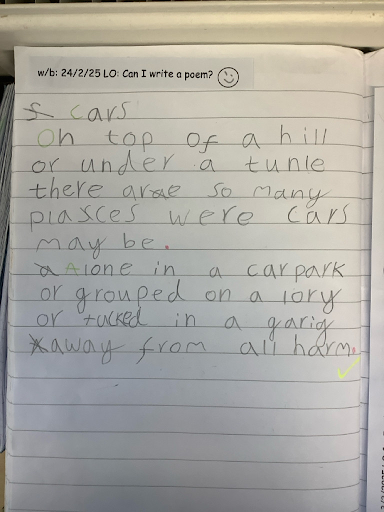 w/b: 24/2/25 LO: Can I write a poem?
cars
On top of a hill
or under a tunle
there arae so many
plasces were cars
may be.
Alone in a car park
or grouped on a lory
or tucked in a garig
away from all harm.